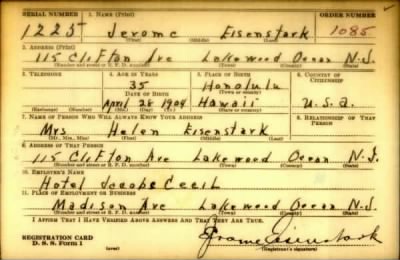 SERIAL NUMBER 1. NAME (Print) ORDER NUMBER
1225 Jerome Eisenstark 1085
(First) (Middle) (Last)
2. ADDRESS (Print)
115 Clifton Ave Lakewood Ocean N.J.
(Number and street or R. F. D. number) (Town) (County) (State)
3. TELEPHONE 4. AGE IN YEARS 5. PLACE OF BIRTH 6. COUNTRY OF CITIZENSHIP
35 Honolulu
DATE OF BIRTH (Town or county)
April 28 1904 Hawaii U.S.A.
(Exchange) (Number) (Mo.) (Day) (Yr.) (State or country)
7. NAME OF PERSON WHO WILL ALWAYS KNOW YOUR ADDRESS 8. RELATIONSHIP OF THAT PERSON
Mrs Helen Eisenstark
(Mr., Mrs., Miss) (First) (Middle) (Last)
9. ADDRESS OF THAT PERSON
115 Clifton Ave Lakewood Ocean N.J.
(Number and street or R. F. D. number) (Town) (County) (State)
10. EMPLOYER'S NAME
Hotel Jacobs Cecil
11. PLACE OF EMPLOYMENT OR BUSINESS
Madison Ave Lakewood Ocean N.J.
(Number and street or R. F. D. number) (Town) (County) (State)
I AFFIRM THAT I HAVE VERIFIED ABOVE ANSWERS AND THAT THEY ARE TRUE.
REGISTRATION CARD
D. S. S. Form 1 (over) (Registrant's signature)
Jerome Eisenstark